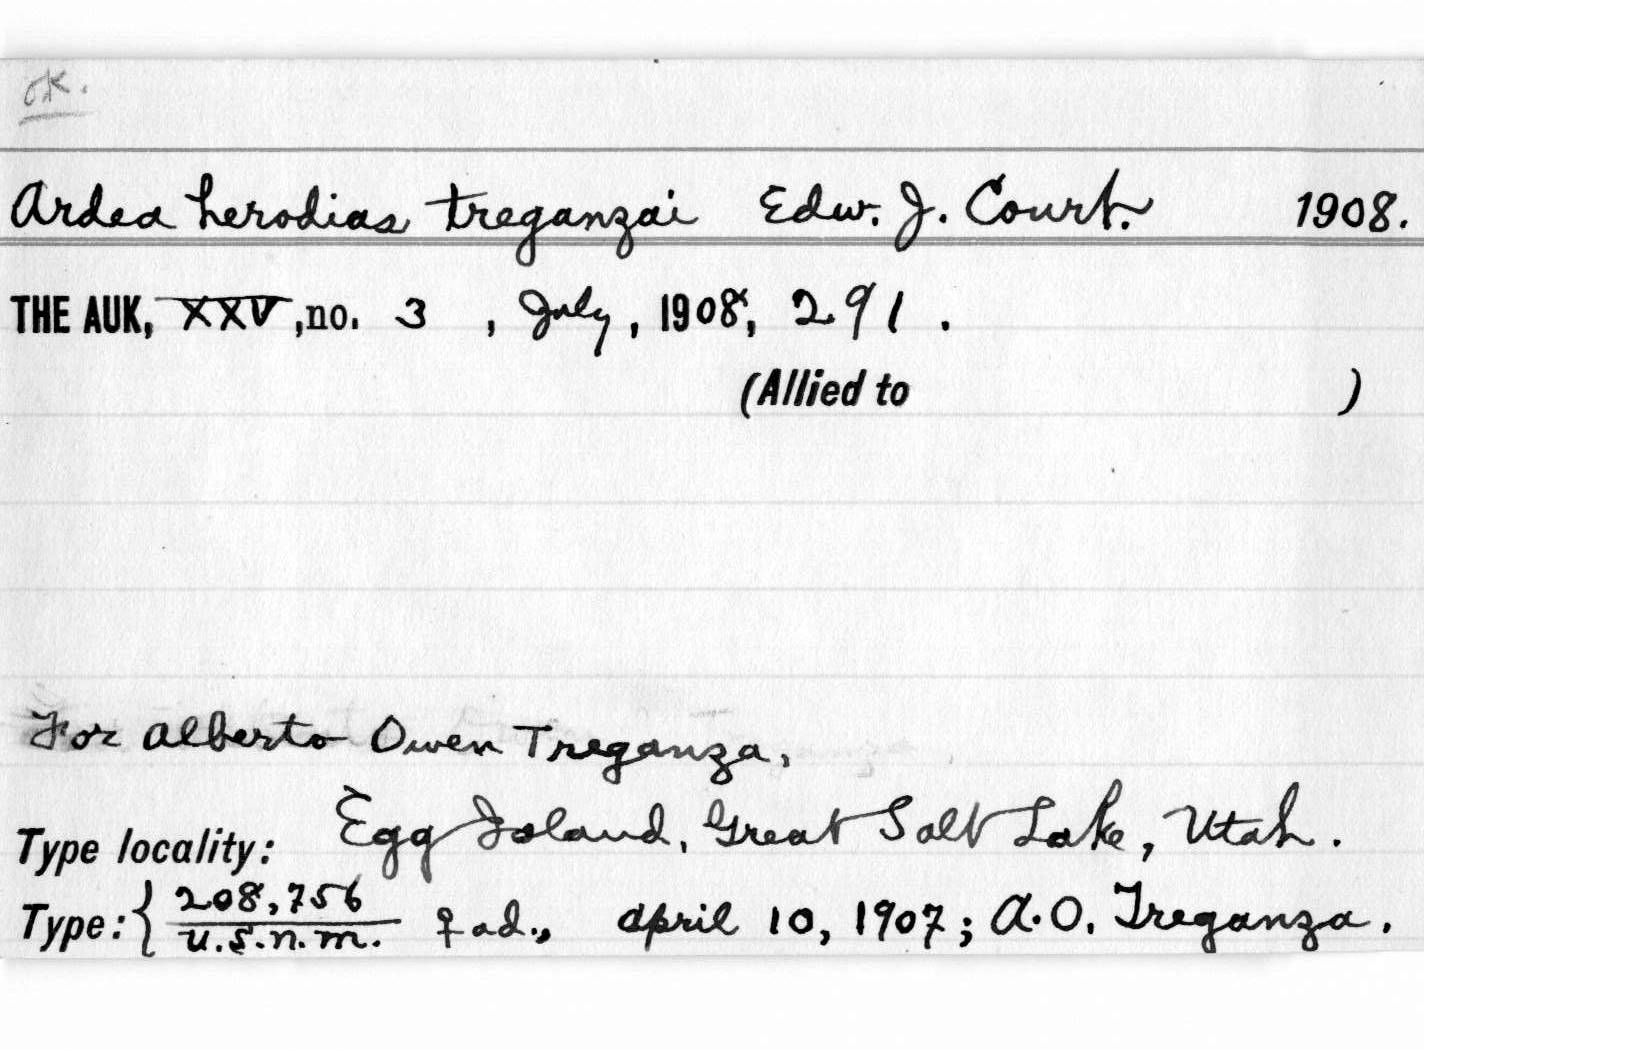 ok.
Ardea herodias treganzai Edw. J. Court. 1908.
THE AUK, XXV, no. 3, July, 1908, 291.
(Allied to )
For Alberto Owen Treganza,
Type locality: Egg Island, Great Salt Lake, Utah.
Type: { 208,756
U.S.N.M. ♀ ad., April 10, 1907; A.O. Treganza.